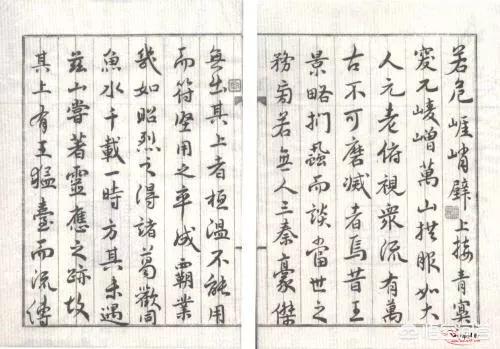 若危崖峭壁上接青冥
突兀崚嶒萬山拱服如大
人元老俯視衆流有萬
古不可磨滅者焉昔王
景略捫蝨而談當世之
務旁若無人三秦豪傑
無出其上者桓溫不能用
而符堅用之卒成霸業
幾如昭烈之得諸葛歡同
魚水千載一時方其未遇
茲山嘗著靈應之跡故
其上有王猛臺而流傳